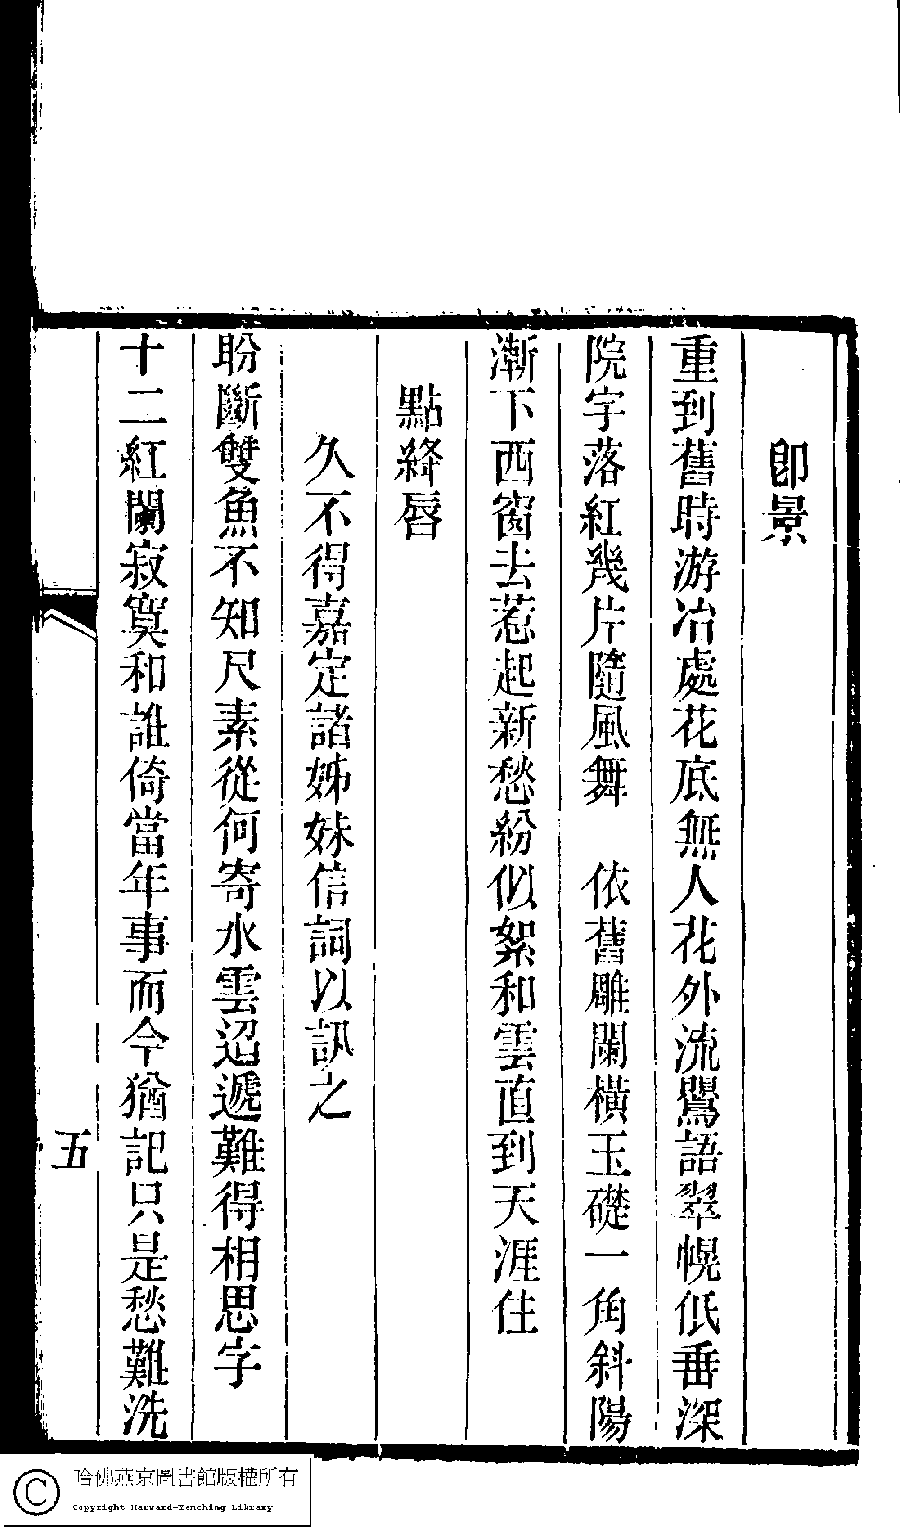 卽景
重到舊時游冶處花底無人花外流鶯語翠幌低垂深
院宇落紅幾片隨風舞　依舊雕闌橫玉礎一角斜陽
漸下西窗去惹起新愁紛似絮和雲直到天涯住
點絳唇
久不得嘉定諸姊妹信詞以訊之
盼斷雙魚不知尺素從何寄水雲迢遞難得相思字
十二紅闌寂寞和誰倚當年事而今猶記只是愁難洗
五
哈佛燕京圖書館版權所有
Copyright Harvard-Yenching Library